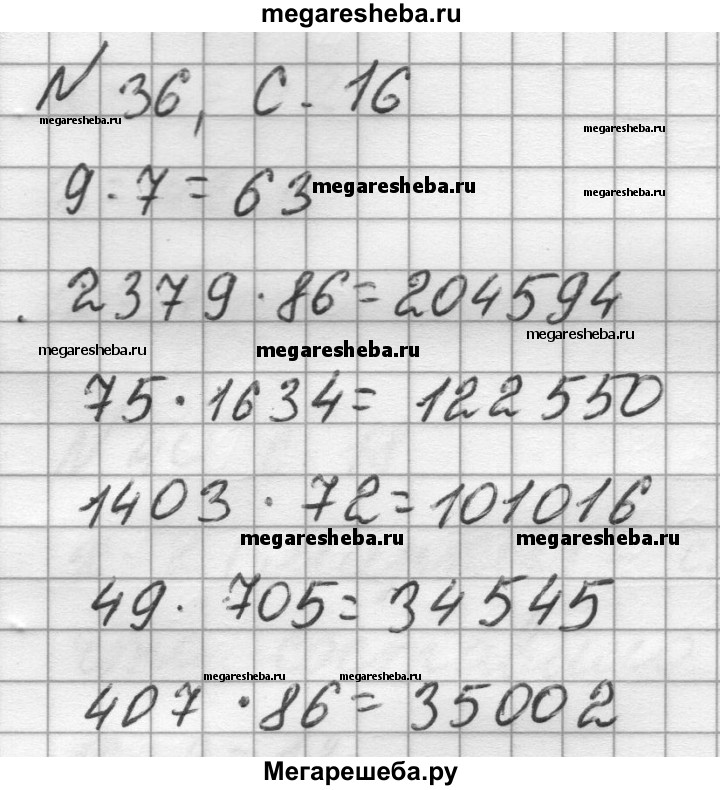 megaresheba.ru
№ 36, С - 16
megaresheba.ru
megaresheba.ru
9 · 7 = 63
megaresheba.ru
megaresheba.ru
2379 · 86 = 204594
megaresheba.ru
megaresheba.ru
megaresheba.ru
75 · 1634 = 122550
1403 · 72 = 101016
megaresheba.ru
megaresheba.ru
49 · 705 = 34545
megaresheba.ru
megaresheba.ru
407 · 86 = 35002
Мегарешеба.ру